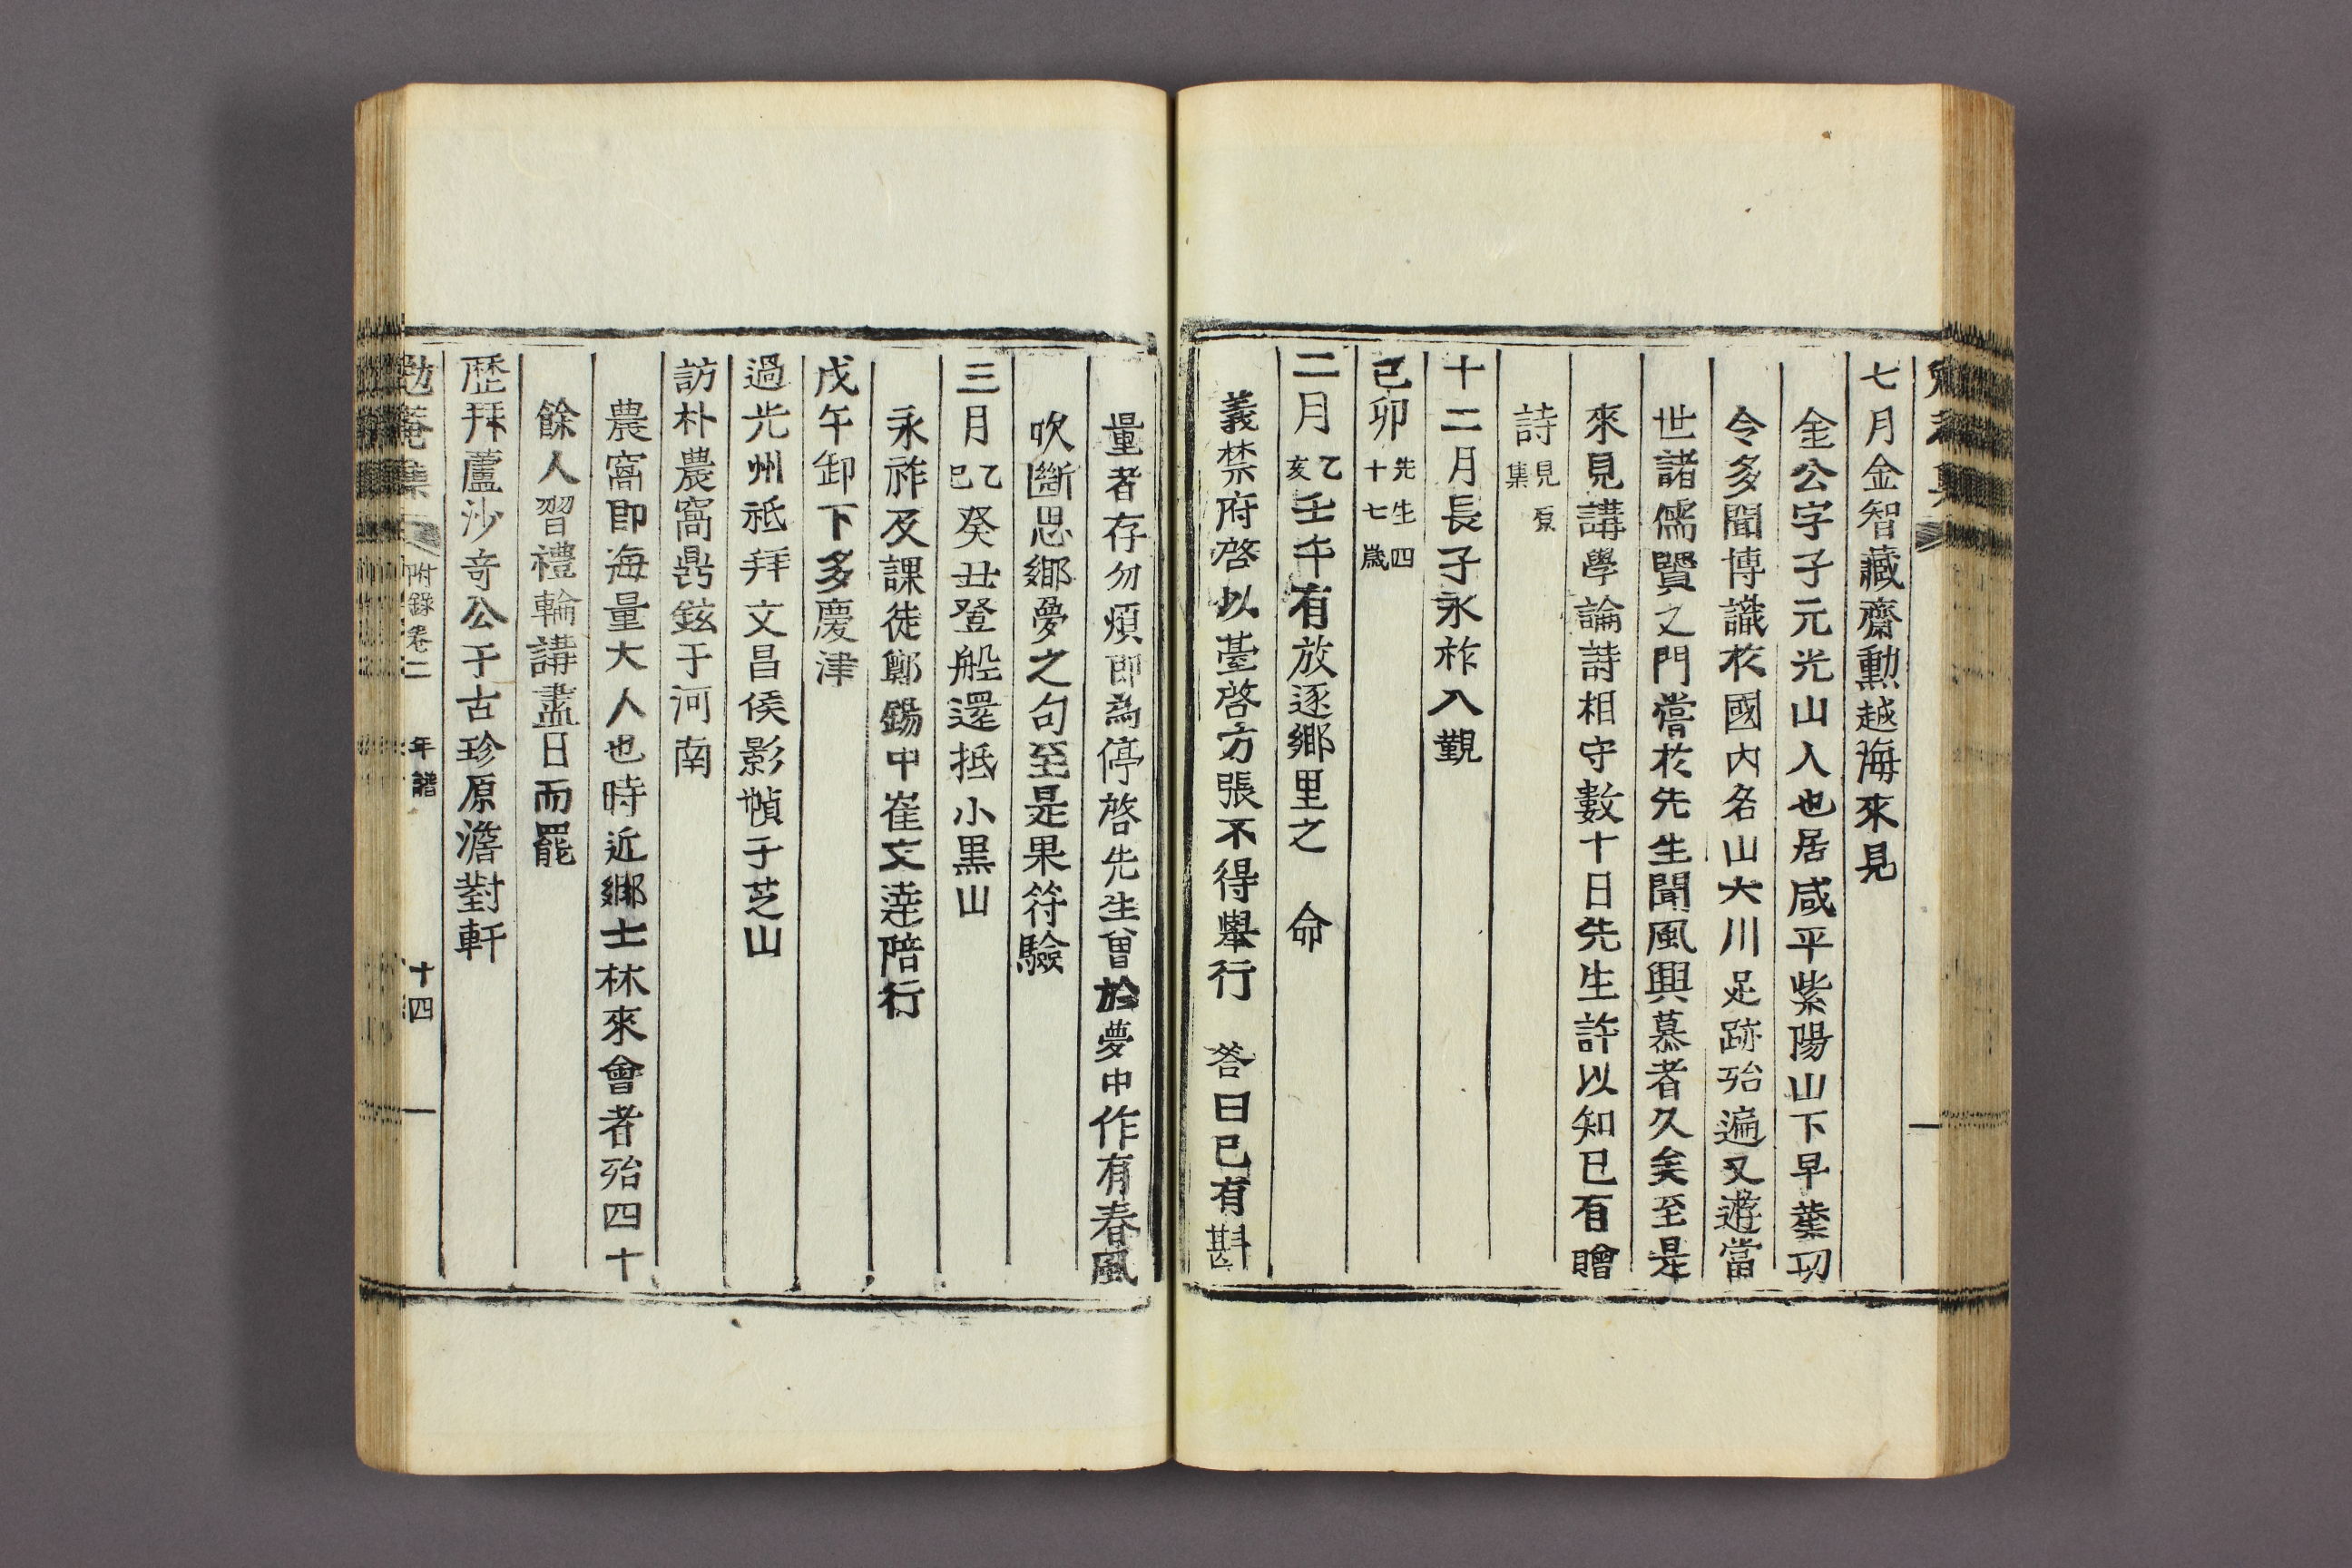 七月金智藏齋勳越海來見
金公字子元光山人也居咸平紫陽山下早業功
令多聞博識於國內名山大川足跡殆遍又遊當
世諸儒賢之門嘗於先生聞風興慕者久矣至是
來見講學論詩相守數十日先生許以知己有贈
詩見原集
十二月長子永祚入覲
己卯先生四十七歲
二月乙亥壬午有放逐鄉里之 命
義禁府啓以臺啓方張不得擧行 答曰已有斟
量者存勿煩卽爲停啓先生曾於夢中作有春風
吹斷思鄉夢之句至是果符驗
三月乙巳癸丑登船還抵小黑山
永祚及課徒鄭錫中崔文達陪行
戊午卸下多慶津
過光州祗拜文昌侯影幀于芝山
訪朴農窩鼎鉉于河南
農窩卽海量大人也時近鄉士林來會者殆四十
餘人習禮輪講盡日而罷
歷拜蘆沙奇公于古珍原澹對軒
勉菴集 附錄卷二 年譜 十四